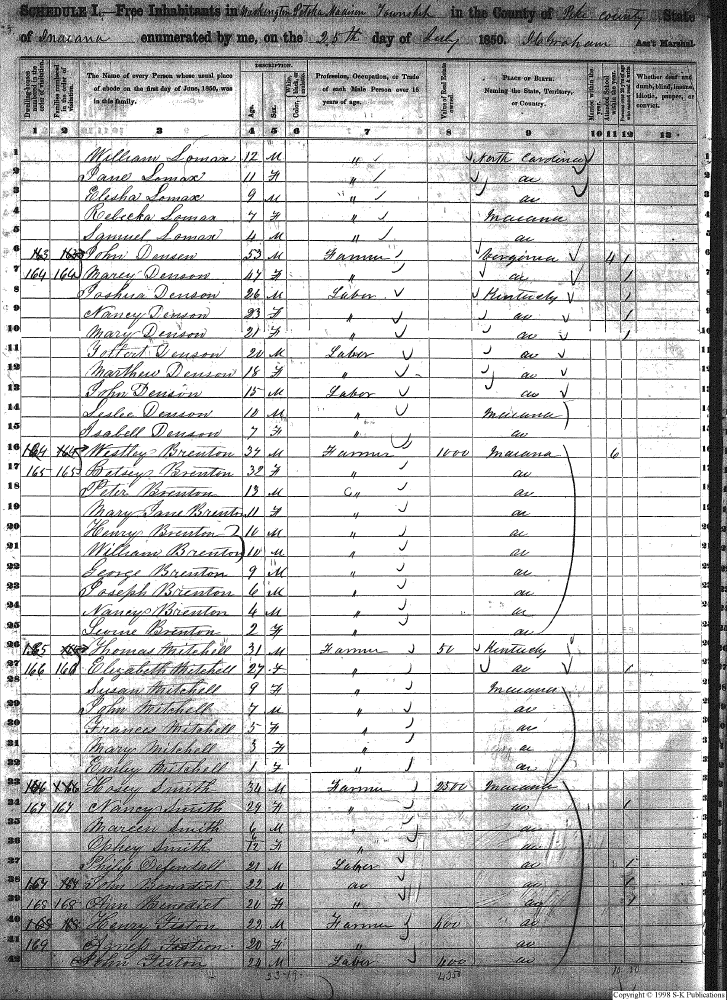 SCHEDULE I.—Free Inhabitants in Washington Patoka Madison Township in the County of Pike county State
of Indiana enumerated by me, on the 25th day of July 1850. Ass't Marshal.
DESCRIPTION.
The Name of every Person whose usual place of abode on the first day of June, 1850, was in this family.
Age.
Sex.
Profession, Occupation, or Trade of each Male Person over 15 years of age.
Value of Real Estate owned.
PLACE OF BIRTH. Naming the State, Territory, or Country.
Whether deaf and dumb, blind, insane, idiotic, pauper, or convict.
1 2 3 4 5 6 7 8 9 10 11 12 13
1 William Lomax 12 M " North Carolina
2 Jane Lomax 11 F " do
3 Elisha Lomax 9 M " do
4 Rebecka Lomax 7 F " Indiana
5 Samuel Lomax 4 M " do
6 163 John Denson 53 M Farmer Virginia 4 1
7 164 164 Marcy Denson 47 F " do 1
8 Joshua Denson 26 M Labor Kentucky 1
9 Nancy Denson 23 F " do 1
10 Mary Denson 21 F " do 1
11 Denson 20 M Labor do
12 Marthew Denson 18 F " do
13 John Denson 15 M Labor do
14 Leslee Denson 10 M " Indiana
15 Isabell Denson 7 F do
16 164 164 Westley Brenton 37 M Farmer 1000 Indiana 6
17 165 165 Betsey Brenton 32 F " do
18 Peter Brenton 13 M " do
19 Mary Jane Brenton 11 F " do
20 Henry Brenton 10 M " do
21 William Brenton 10 M " do
22 George Brenton 9 M " do
23 Joseph Brenton 6 M " do
24 Nancy Brenton 4 M " do
25 Brenton 2 F " do
26 165 Thomas Mitchell 31 M Farmer 50 Kentucky
27 166 166 Elizabeth Mitchell 27 F " do 1
28 Susan Mitchell 9 F " Indiana
29 John Mitchell 7 M " do
30 Frances Mitchell 5 F " do
31 Mary Mitchell 3 F " do
32 Emiley Mitchell 1 F " do
33 166 166 Hosey Smith 34 M Farmer 2500 Indiana
34 167 167 Nancy Smith 29 F " do 1
35 Mareen Smith 6 M " do
36 Ophey Smith 12 F " do
37 Philip Defendall 21 M Labor do 1
38 167 John Benedict 22 M do do 1
39 168 168 Ann Benedict 20 F " do 1
40 168 Henry Fiston 22 M Farmer 400 do
41 169 20 F " do
42 John Fiston 24 M Labor 400 do
4350
Copyright © 1998 S-K Publications